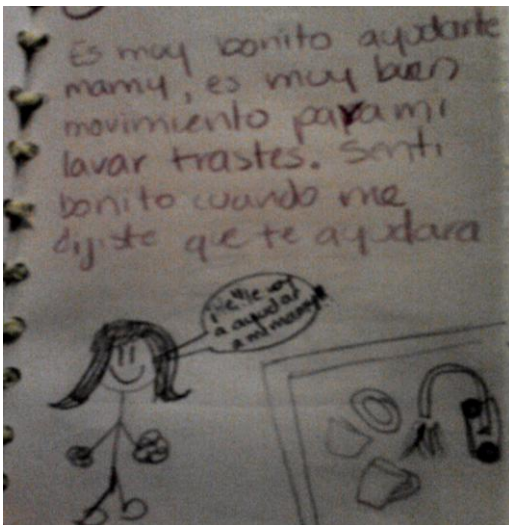 Es muy bonito ayudarte
mamy, es muy buen
movimiento para mi
lavar trastes. Senti
bonito cuando me
dijiste que te ayudara
le voy
a ayudar
a mi mamy!